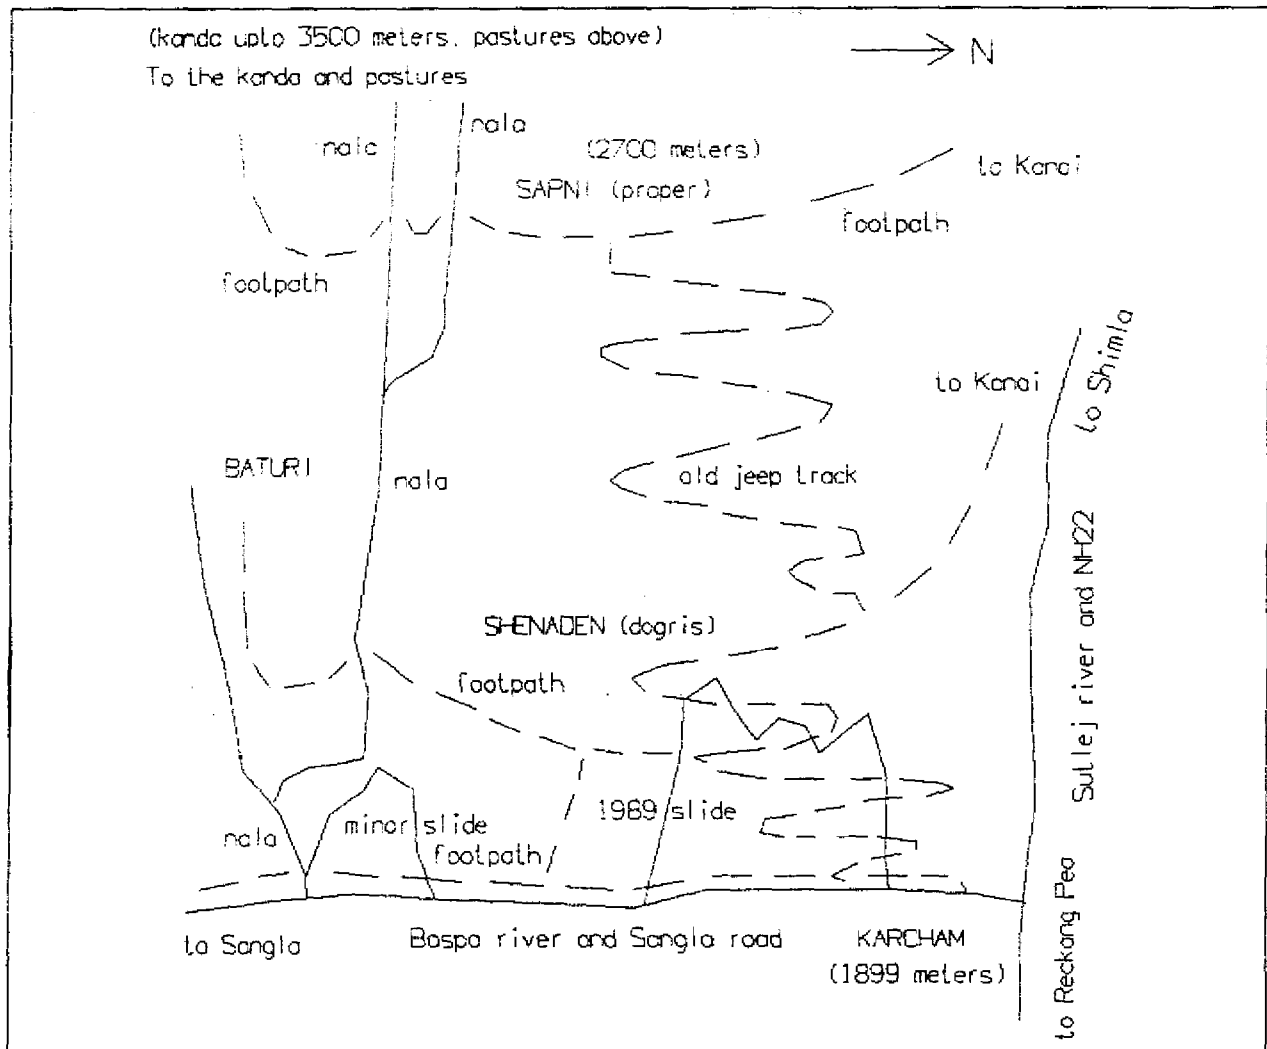 (kanda upto 3500 meters, pastures above)
To the kanda and pastures
N
nala
nala
(2700 meters)
SAPNI (proper)
to Kanai
footpath
footpath
to Kanai
to Shimla
BATURI
nala
old jeep track
Sutlej river and NH22
SHENADEN (dogris)
footpath
1989 slide
minor slide
nala
footpath
to Sangla
Baspa river and Sangla road
KARCHAM
(1899 meters)
to Reckong Peo